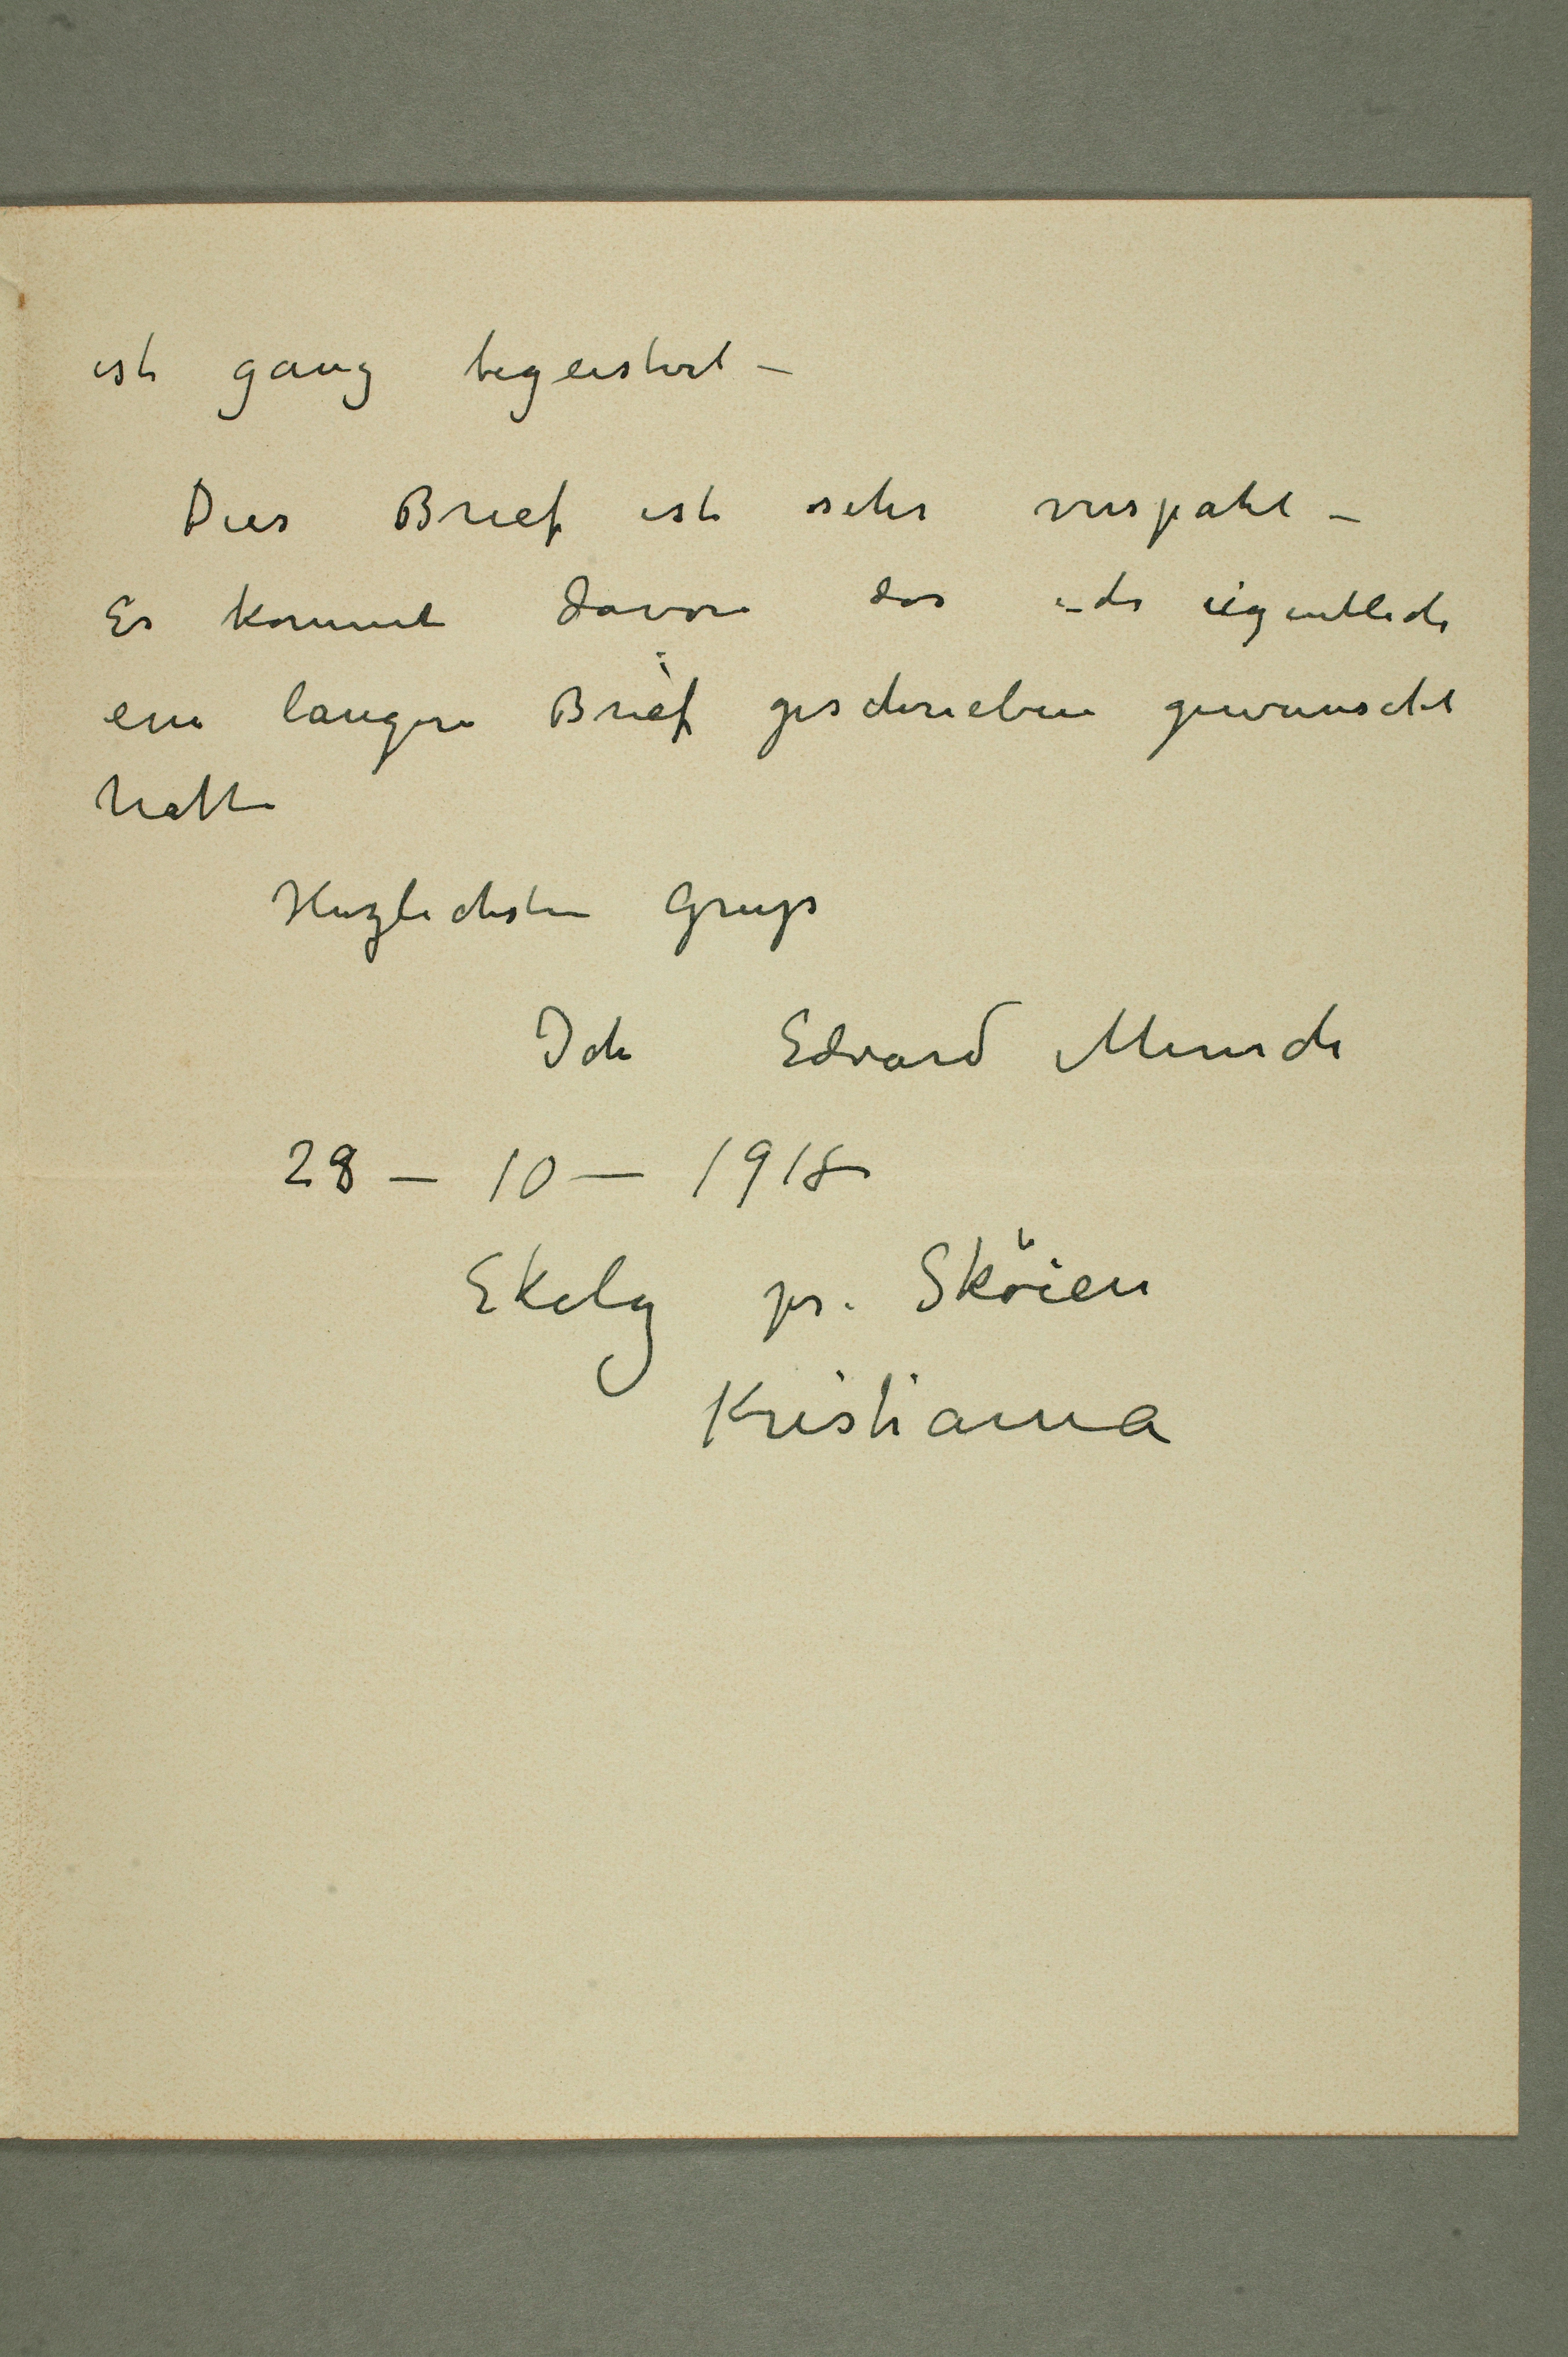 ist ganz begeistert –
Dies Brief ist sehr verspatet –
Es kommt davon das ich eigentlich
ein langere Brief geschrieben gewunscht
hatte
Herzlichsten Gruss
Ich Edvard Munch
28 – 10 – 1918
Ekely pr. Sköien
Kristiania